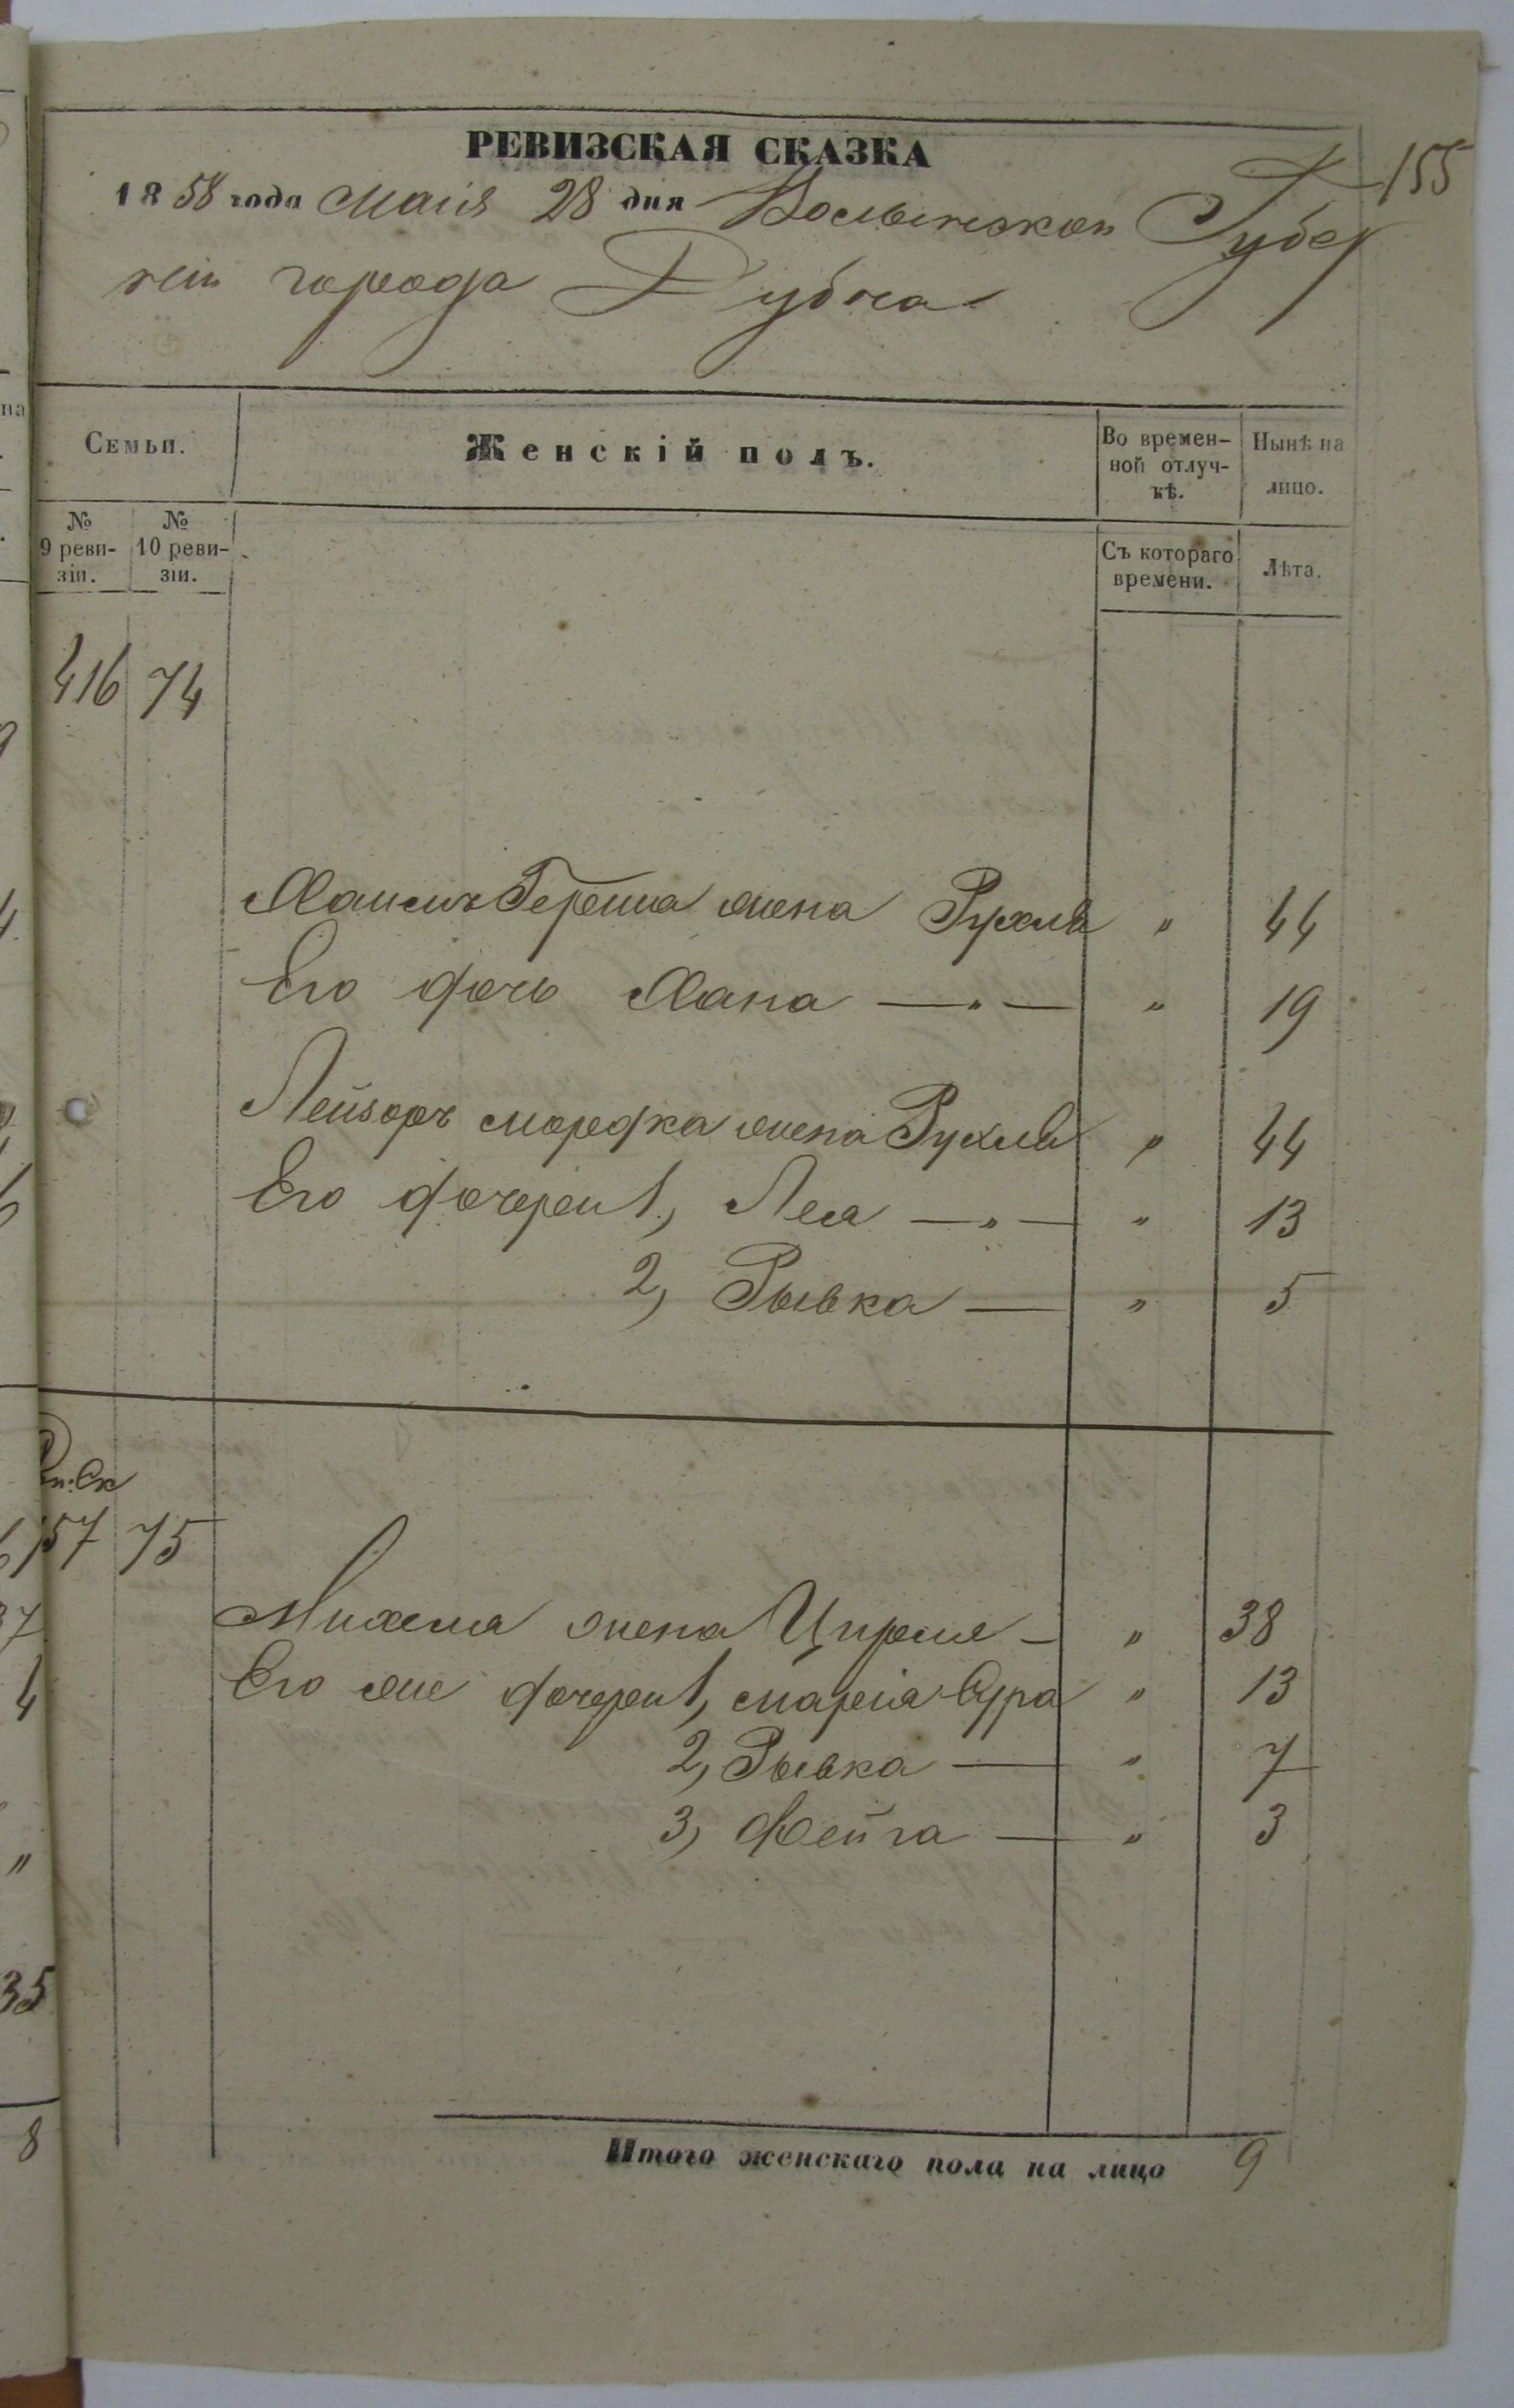 РЕВИЗСКАЯ СКАЗКА
155
1858 года Маія 28 дня Волынской Губер
ніи города Дубна
Семьи.
Женскій полъ.
Во времен-
ной отлуч-
кѣ.
Нынѣ на
лицо.
№
9 реви-
зіи.
№
10 реви-
зіи.
Съ котораго
времени.
Лѣта.
416 74
Хаимъ Герша жена Рухля " 44
Его дочь Хана — " — " 19
Лейзоръ Мордка жена Рухля " 44
Его дочери 1, Леа — " — " 13
2, Рывка — " 5
157 75
Михеля жена Ципра — " 38
Его же дочери 1, Сура " 13
2, Рывка — " 7
3, Фейга — " 3
Итого женскаго пола на лицо 9